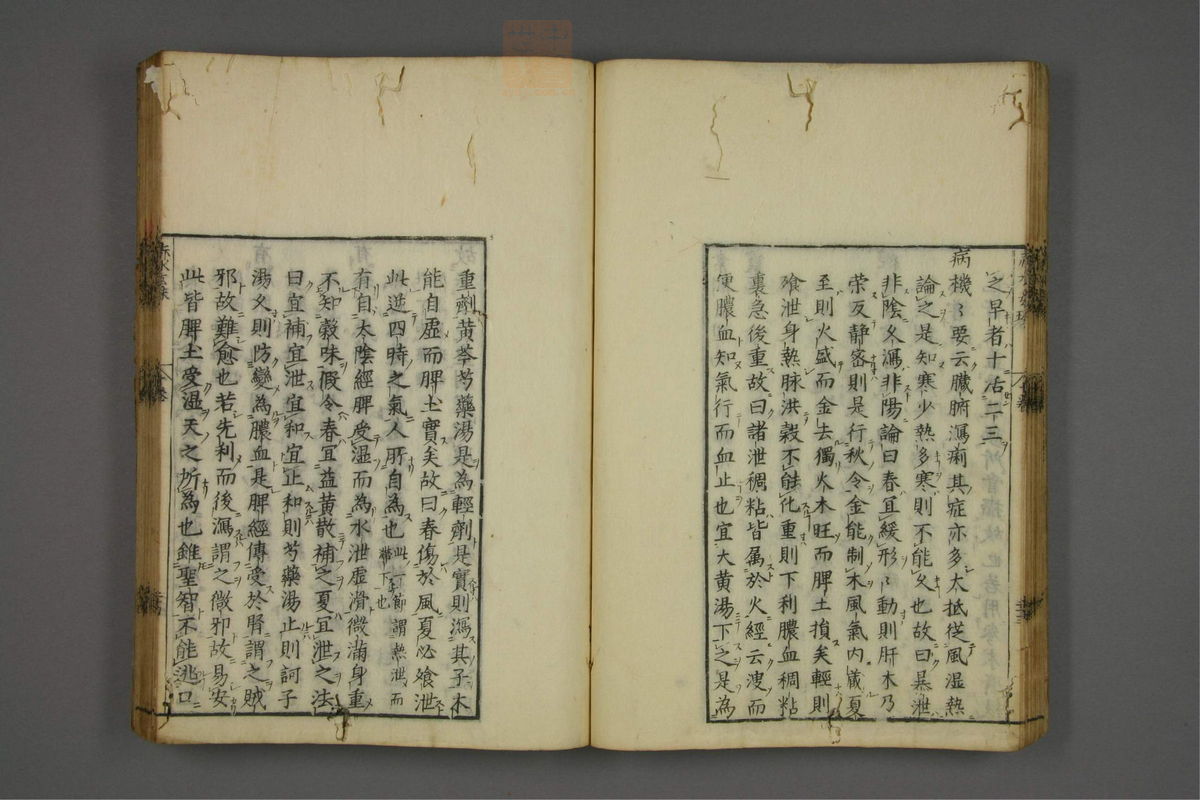 之早者十活二三
病機〻要云臓腑瀉痢其症亦多大抵從風湿熱
論之是知寒少熱多寒則不能久也故曰暴泄
非陰久瀉非陽論曰春冝緩形〻動則肝木乃
荣反静密則是行秋令金能制木風氣内藏夏
至則火盛而金去獨火木旺而脾土損矣輕則
飱泄身熱脉洪穀不能化重則下利膿血稠粘
裏急後重故曰諸泄稠粘皆属於火經云溲而
便膿血知氣行而血止也宜大黄湯下之是為
重劑黄芩芍藥湯是為輕劑是實則瀉其子木
能自虚而脾土實矣故曰春傷於風夏必飱泄
此逆四時之氣人所自為也此一節謂熱泄而
帯下也
有自太陰經脾受湿而為水泄虚滑微滿身重
不知穀味假令春冝益黄散補之夏冝泄之法
曰宜補宜泄宜和宜止和則芍藥湯止則訶子
湯久則防變為膿血是脾經傳受於腎謂之賊
邪故難愈也若先利而後瀉謂之微邪故易安
此皆脾土受湿天之所為也雖聖智不能逃口